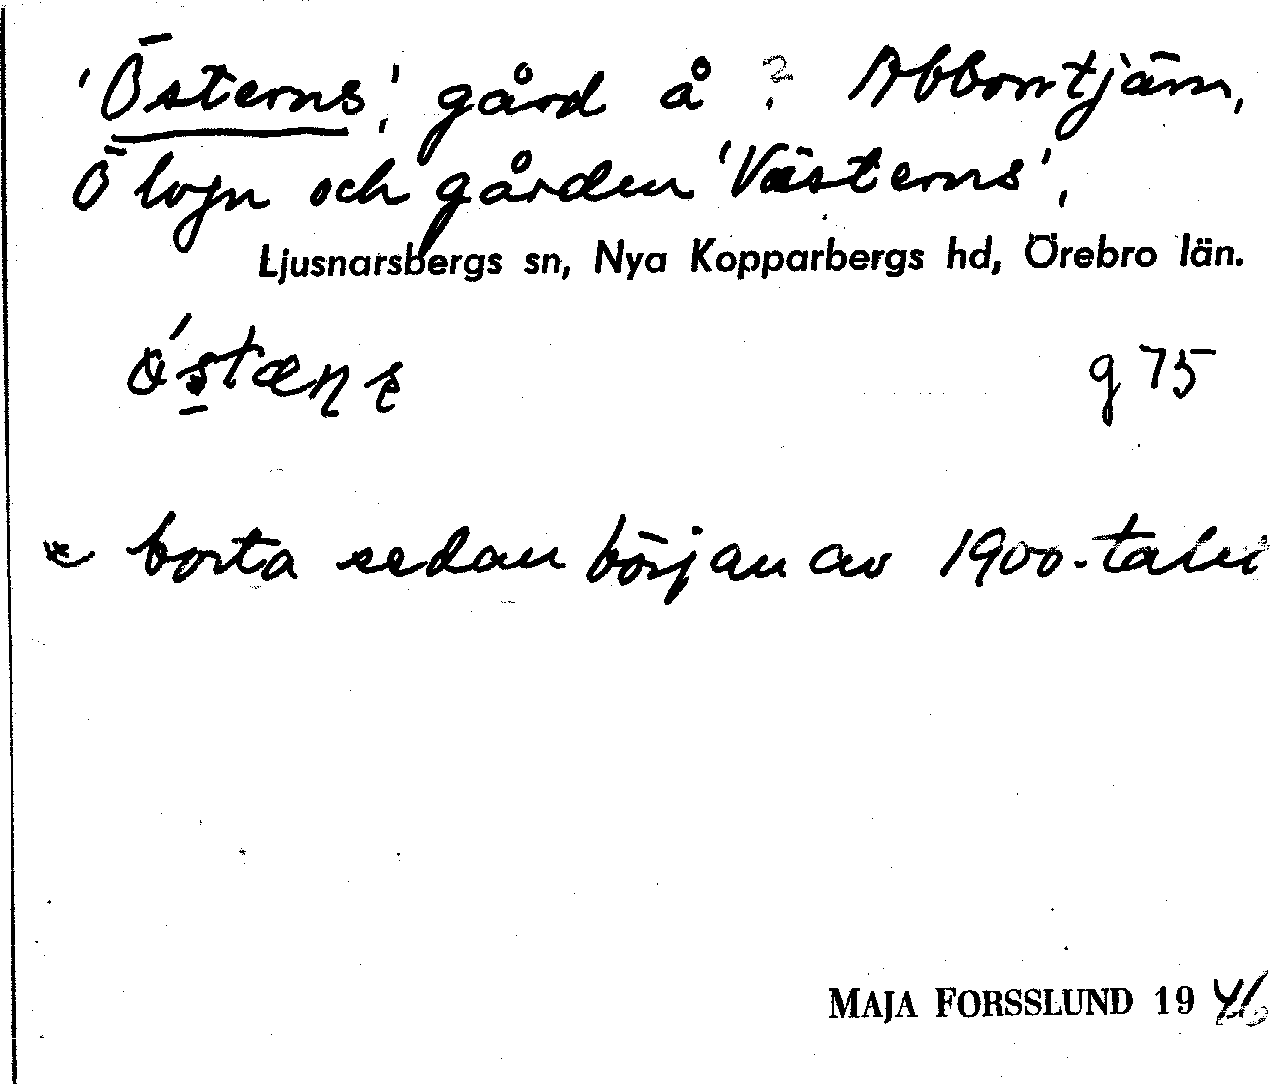 'Österns', gård å ? Abborrtjärn,
Ö lojn och gården 'Västerns',
Ljusnarsbergs sn, Nya Kopparbergs hd, Örebro län.
g 75
borta sedan början av 1900-talet
MAJA FORSSLUND 1946